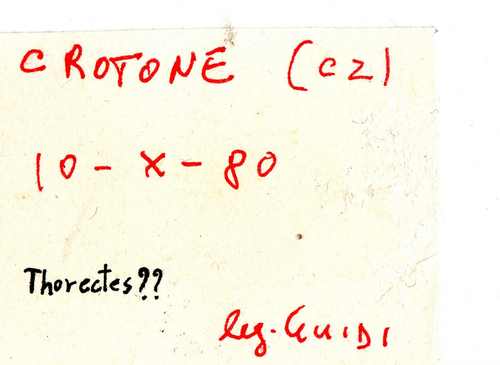 CROTONE (CZ)
10-X-80
Thorectes??
leg. GUIDI